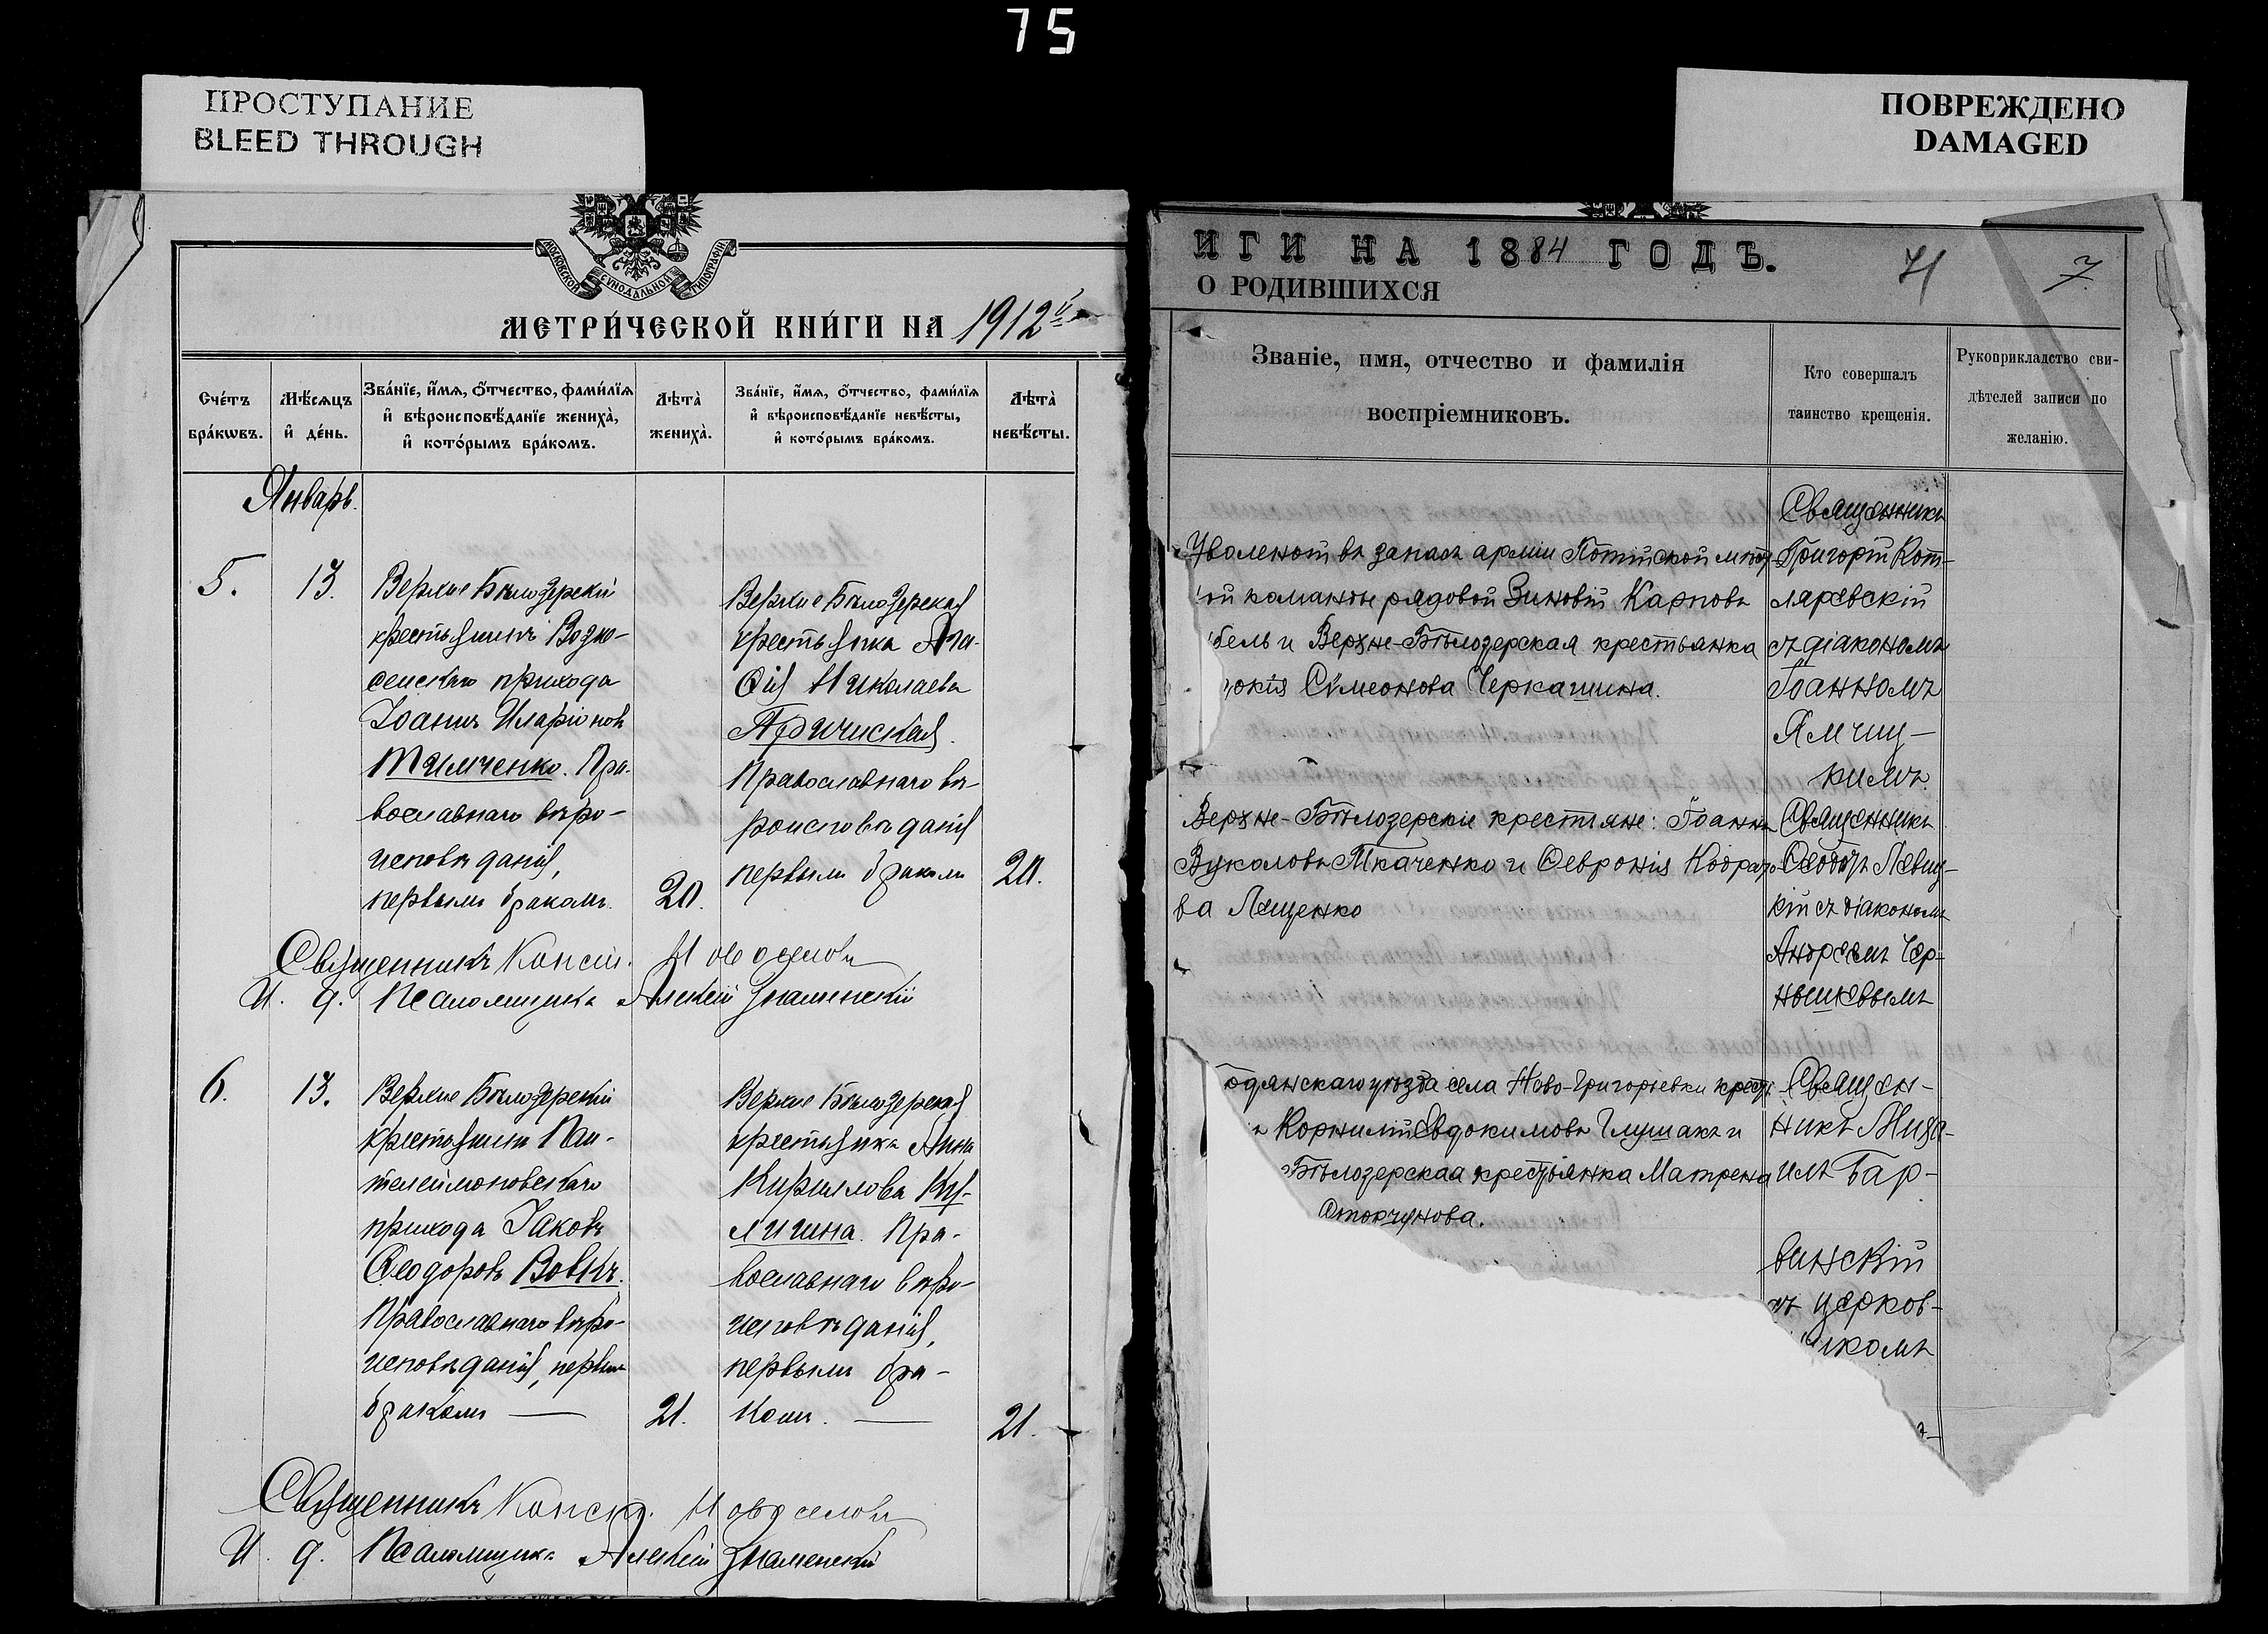 75
ПРОСТУПАНИЕ
BLEED THROUGH
ПОВРЕЖДЕНО
DAMAGED
МОСКОВСКОЙ СѴНОДАЛЬНОЙ ТИПОГРАФІИ
МЕТРИ́ЧЕСКОЙ КНИ́ГИ НА 1912
Сче́тъ бра́кωвъ.
Мѣ́сяцъ и҆ де́нь.
Зва́нїе, и҆́мя, ѻ҆́тчество, фами́лїя
и҆ вѣроисповѣ́данїе жениха̀,
и҆ кото́рымъ бра́комъ.
Лѣта̀ жениха̀.
Зва́нїе, и҆́мя, ѻ҆́тчество, фами́лїя
и҆ вѣроисповѣ́данїе невѣ́сты,
и҆ кото́рымъ бра́комъ.
Лѣта̀ невѣ́сты.
Январь.
5.
13.
Верхне Бѣлозерскій
крестьянинъ Возне-
сенскаго прихода
Іоаннъ Иларіоновъ
Тимченко. Пра-
вославнаго вѣро-
исповѣданія,
первымъ бракомъ.
20.
Верхне Бѣлозерская
крестьянка
Николаева
Православнаго вѣ-
роисповѣданія
первымъ бракомъ
20.
Священникъ Новоселовъ
И. д. Псаломщика Алексій Знаменскій
6.
13.
Верхне Бѣлозерскій
крестьянинъ Пан-
телеймоновскаго
прихода Іаковъ
Ѳеодоровъ Вовкъ.
Православнаго вѣро-
исповѣданія, первымъ
бракомъ —
21.
Верхне Бѣлозерская
крестьянка Анна
Кириллова Ку-
личина. Пра-
вославнаго вѣро-
исповѣданія,
первымъ бра-
комъ. —
21.
Священникъ Новоселовъ
И. д. Псаломщика Алексій Знаменскій
ИГИ НА 1884 ГОДЪ.
О РОДИВШИХСЯ
71
7
Званіе, имя, отчество и фамилія
воспріемниковъ.
Кто совершалъ
таинство крещенія.
Рукоприкладство сви-
дѣтелей записи по
желанію.
Уволеной въ запасъ арміи Потійской мѣст
ой команды рядовой Зиновій Карповъ
бель и Верхне-Бѣлозерская крестьянка
докія Сѵмеонова Черкашина.
Священникъ
Григорій Кот-
ляревскій
съ діакономъ
Іоанномъ
Ямчиц-
кимъ.
Верхне-Бѣлозерскіе крестьяне: Іоаннъ
Вуколовъ Ткаченко и Ѳевронія Кодрато
ва Лященко
Священникъ
Ѳеодоръ Левиц-
кій съ діакономъ
Андреемъ Чер-
нышевымъ
одянскаго уѣзда села Ново-Григорьевки кресть
ъ Корнилій Евдокимовъ Глушакъ и
Бѣлозерская крестьянка Матрена
Сторчунова.
Священ-
никъ Миха-
илъ Бар-
винскій
съ церков-
икомъ